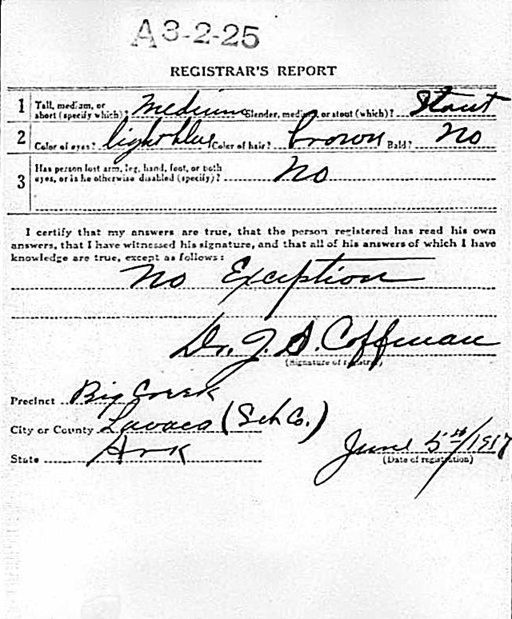 A3-2-25
REGISTRAR'S REPORT
1 Tall, medium, or short (specify which)? Medium Slender, medium, or stout (which)? Stout
2 Color of eyes? light blue Color of hair? brown Bald? No
3 Has person lost arm, leg, hand, foot, or both eyes, or is he otherwise disabled (specify)? No
I certify that my answers are true, that the person registered has read his own
answers, that I have witnessed his signature, and that all of his answers of which I have
knowledge are true, except as follows:
No Exception
Dr. J. D. Coffman
(Signature of registrar)
Precinct Big Creek
City or County Lavaca (Seb Co.)
State Ark June 5th/1917
(Date of registration)